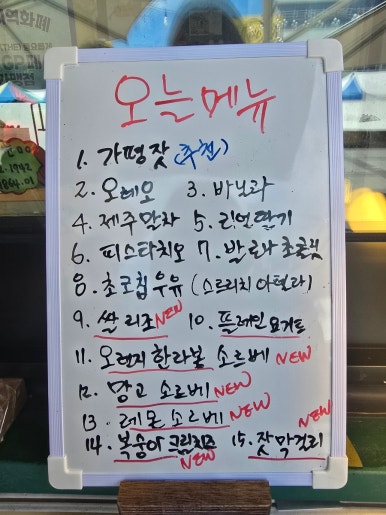 역화폐
오늘메뉴
1. 가평잣 (추천)
2. 오레오 3. 바닐라
4. 제주말차 5. 리얼딸기
6. 피스타치오 7. 발로나 초콜릿
8. 초코칩우유 (스트라치아텔라)
9. 쌀 리조 NEW 10. 플레인요거트
11. 오렌지한라봉 소르베 NEW
12. 망고 소르베 NEW
13. 레몬 소르베 NEW
14. 복숭아크림치즈 NEW 15. 잣막걸리 NEW